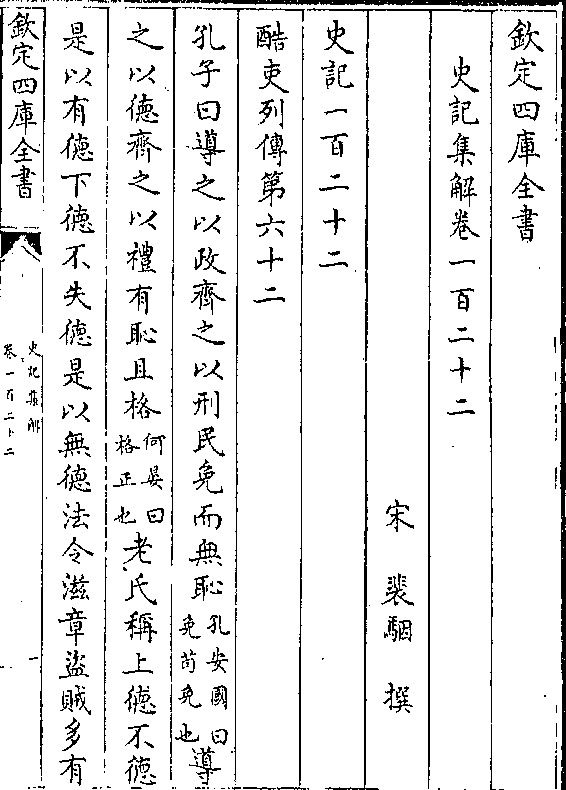 欽定四庫全書
史記集解卷一百二十二
宋 裴駰 撰
史記一百二十二
酷吏列傳第六十二
孔子曰導之以政齊之以刑民免而無恥孔安國曰免苟免也導
之以德齊之以禮有恥且格何晏曰格正也老氏稱上德不德
是以有德下德不失德是以無德法令滋章盜賊多有
欽定四庫全書
史記集解
卷一百二十二
一